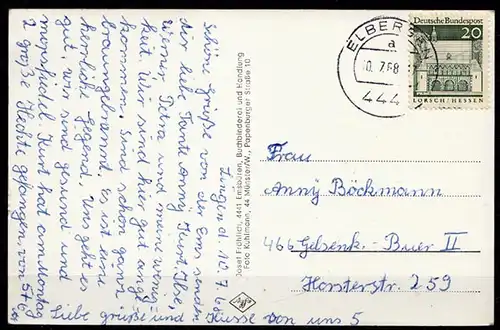 Lingen d. 10.7.68
Schöne Grüße von der Ems senden
dir liebe Tante Anny, Kurt, Ilse,
Werner, Petra und meine Wenig-
keit. Wir sind hier gut ange-
kommen. Sind schon ganz
braungebrannt. Es ist eine
herrliche Gegend, uns geht es
gut, wir sind gesund und
munter. Kurt hat am Montag
2 große Hechte gefangen, von 5+6
Liebe Grüße und Küsse von uns 5
Josef Fröhlich, 4441 Emsbüren, Buchbinderei und Handlung
Foto Kuhlmann, 44 Münster/W., Papenburger Straße 10
Agfa
ELBERGEN
a
10.7.68
444
Deutsche Bundespost
20
LORSCH/HESSEN
Frau
Anny Böckmann
466 Gelsenk.-Buer II
Horsterstr. 259